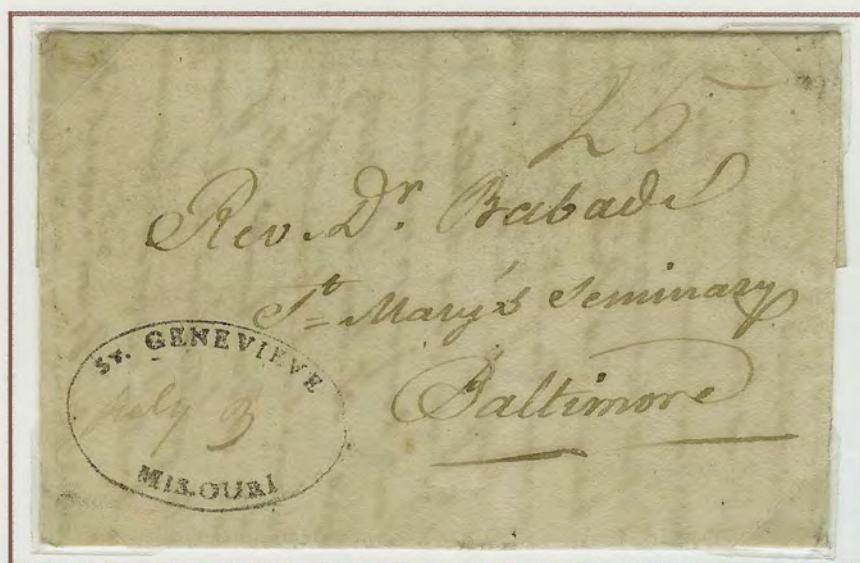 25
Rev. Dr. Babad
St. Mary's Seminary
Baltimore
St. GENEVIEVE
July 3
MIS.OURI